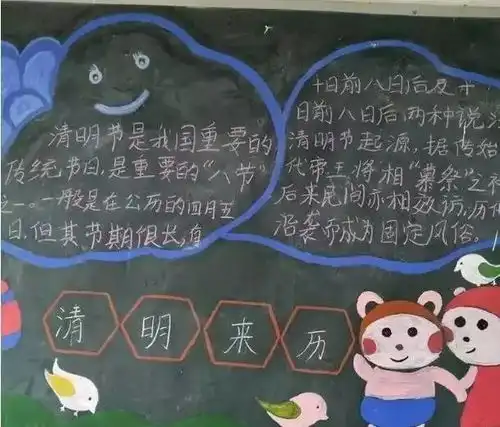 清明节是我国重要的
传统节日,是重要的“八节”
之一。一般是在公历的四月五
日,但其节期很长,有
十日前八日后及十
日前八日后,两种说法
清明节起源,据传始
代帝王将相“墓祭”之
后来民间亦相效访,历代
沿袭而成为固定风俗。
清明来历